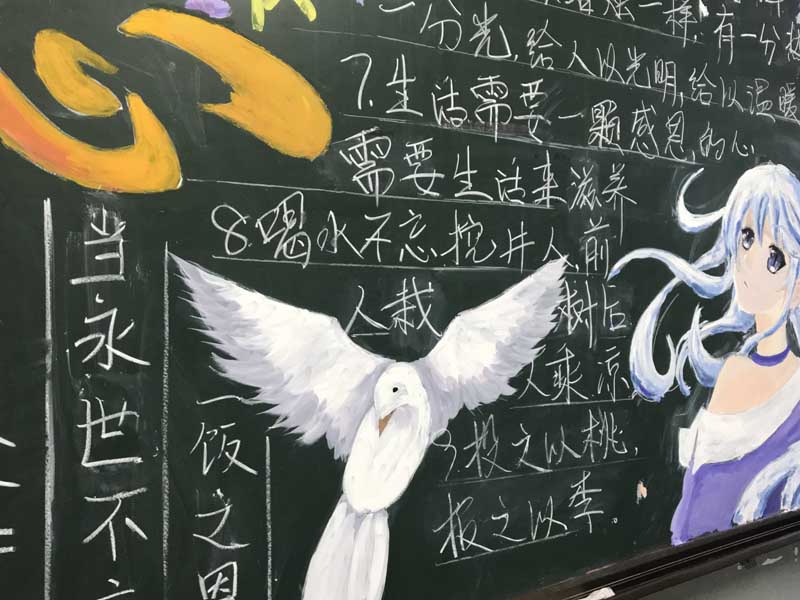 一样,有一分
一分光,给人以光明,给以温暖
7.生活需要一颗感恩的心,
需要生活来滋养
8.喝水不忘挖井人,前
人栽树后
人乘凉
9.投之以桃,
报之以李。
一饭之恩
当永世不